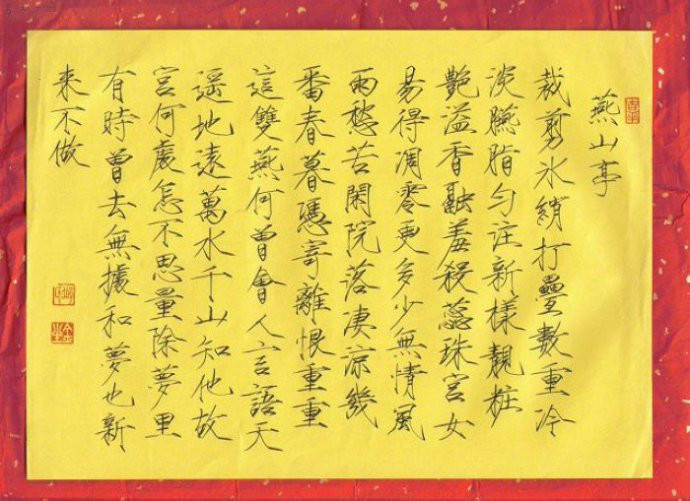 燕山亭
裁剪氷綃打疊數重冷
淡臙脂勻注新樣靚粧
艷溢香融羞殺蕊珠宮女
易得凋零更多少無情風
雨愁苦閑院落凄涼幾
番春暮憑寄離恨重重
這雙燕何曾會人言語天
遥地遠萬水千山知他故
宮何處怎不思量除夢里
有時曾去無據和夢也新
来不做